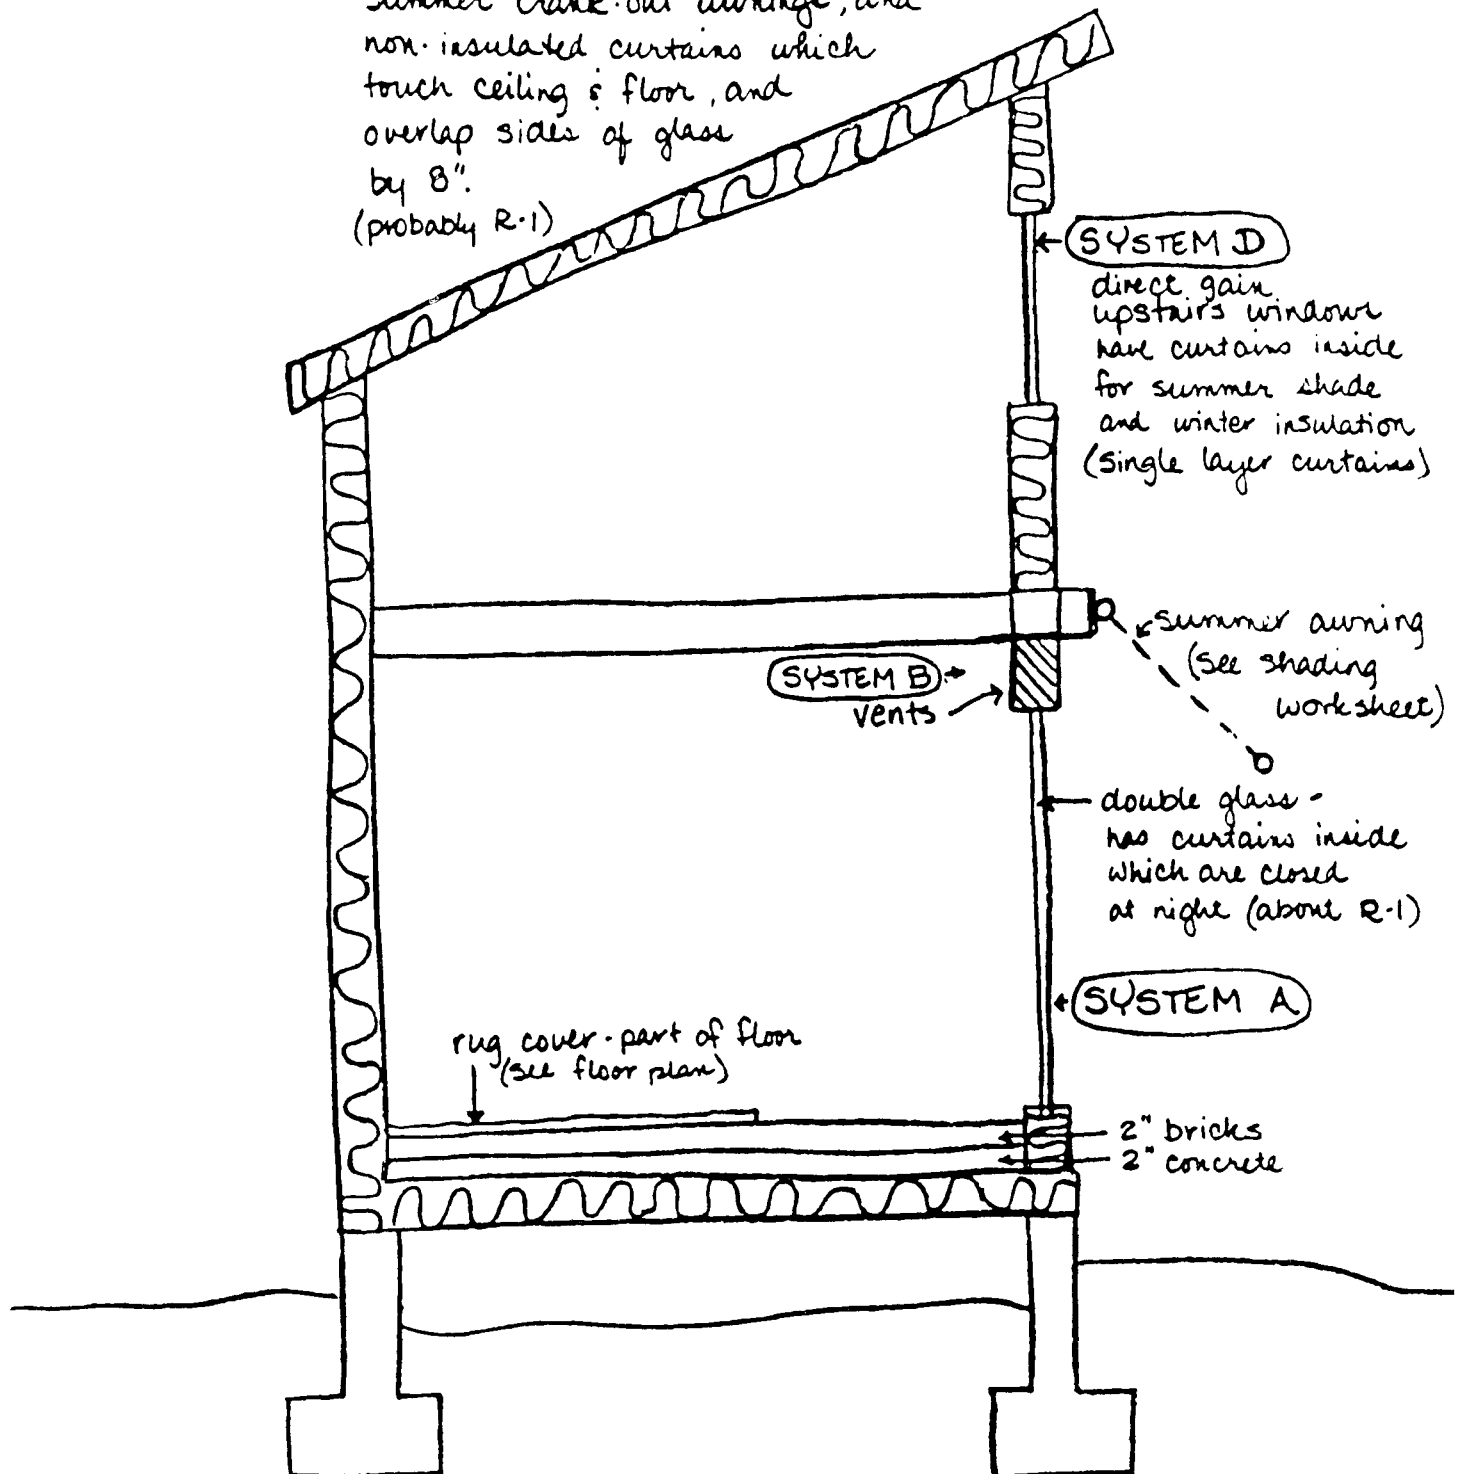 summer crank-out awnings, and
non-insulated curtains which
touch ceiling & floor, and
overlap sides of glass
by 8".
(probably R-1)
SYSTEM D
direct gain
upstairs windows
have curtains inside
for summer shade
and winter insulation
(single layer curtains)
summer awning
(see shading
worksheet)
SYSTEM B
vents
double glass -
has curtains inside
which are closed
at night (about R-1)
SYSTEM A
rug cover - part of floor
(see floor plan)
2" bricks
2" concrete